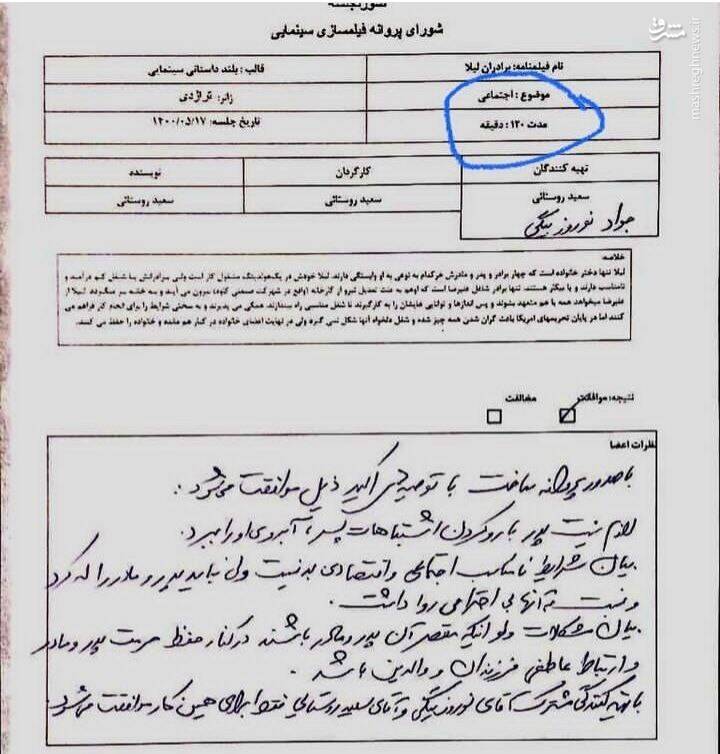 صورتجلسه
شورای پروانه فیلمسازی سینمایی
مشرق
mashreghnews.ir
نام فیلمنامه: برادران لیلا
قالب: بلند داستانی سینمایی
موضوع: اجتماعی
ژانر: تراژدی
مدت ۱۳۰: دقیقه
تاریخ جلسه: ۱۴۰۰/۰۵/۱۷
تهیه کنندگان
کارگردان
نویسنده
سعید روستائی
سعید روستائی
سعید روستائی
جواد نوروزبیگی
خلاصه
لیلا تنها دختر خانواده است که چهار برادر و پدر و مادرش هرکدام به نوعی به او وابستگی دارند. لیلا خودش در یک هولدینگ مشغول کار است ولی برادرانش یا شغل کم درآمد و
نامناسب دارند و یا بیکار هستند. تنها برادر شاغل علیرضا است که اوهم به علت تعدیل نیرو از کارخانه (واقع در شهرکت صنعتی کاوه) بیرون می آیند و به خانه بر میگردد. لیلا از
علیرضا میخواهد همه با هم متعهد بشوند و پس اندازها و توانایی هایشان را به کارگیرند تا شغل مناسبی راه بیندازند. همگی می پذیرند و به سختی شرایط را برای انجام کار فراهم می
کنند اما در پایان تحریمهای امریکا باعث گران شدن همه چیز شده و شغل دلخواه آنها شکل نمی گیرد ولی در نهایت اعضای خانواده در کنار هم مانده و خانواده را حفظ می کنند.
نتیجه: موافقت مخالفت
نظرات اعضا
با صدور پروانه ساخت با توصیه های اکید ذیل موافقت می شود:
لازم نیست پدر با رو کردن اشتباهات پسر، آبروی او را ببرد.
بیان شرایط نامناسب اجتماعی و اقتصادی بد نیست ولی نباید پدر و مادر را له کرد
و نسبت به آنها بی احترامی روا داشت.
بیان مشکلات ولو اینکه مقصر آن پدر و مادر باشند در کنار حفظ حرمت پدر و مادر
و ارتباط عاطفی فرزندان و والدین باشد.
با تهیه کنندگی مشترک آقای نوروزبیگی و آقای سعید روستایی فقط برای همین کار موافقت می شود.